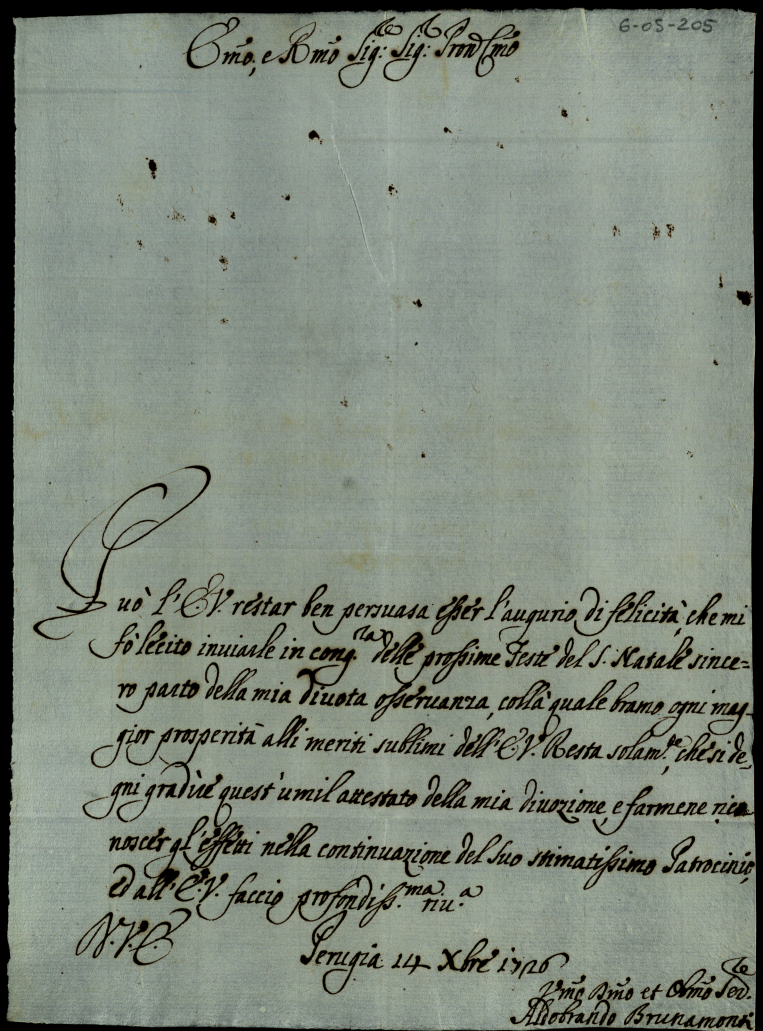 6-05-205
Em̃o, e Rm̃o Sig:re Sig:re Pron Cm̃o
Può l'E.V. restar ben persuasa esser l'augurio di felicità, che mi
fò lecito inviarle in cong.ra delle prossime Feste del S. Natale since=
ro parto della mia divota osservanza, colla quale bramo ogni mag-
gior prosperità alli meriti sublimi dell'E.V. Resta solam.te, che si de,
gni gradire quest'umil attestato della mia divozione, e farmene rico
noscer gl'effetti nella continuazione del suo stimatissimo Patrocinio,
ed all'E.V. faccio profondiss.ma riv.a
V.V.E.
Perugia 14 Xbre 1726
Vm̃o Dm̃o et Obm̃o Ser.re
Aldobrando Brunamonti